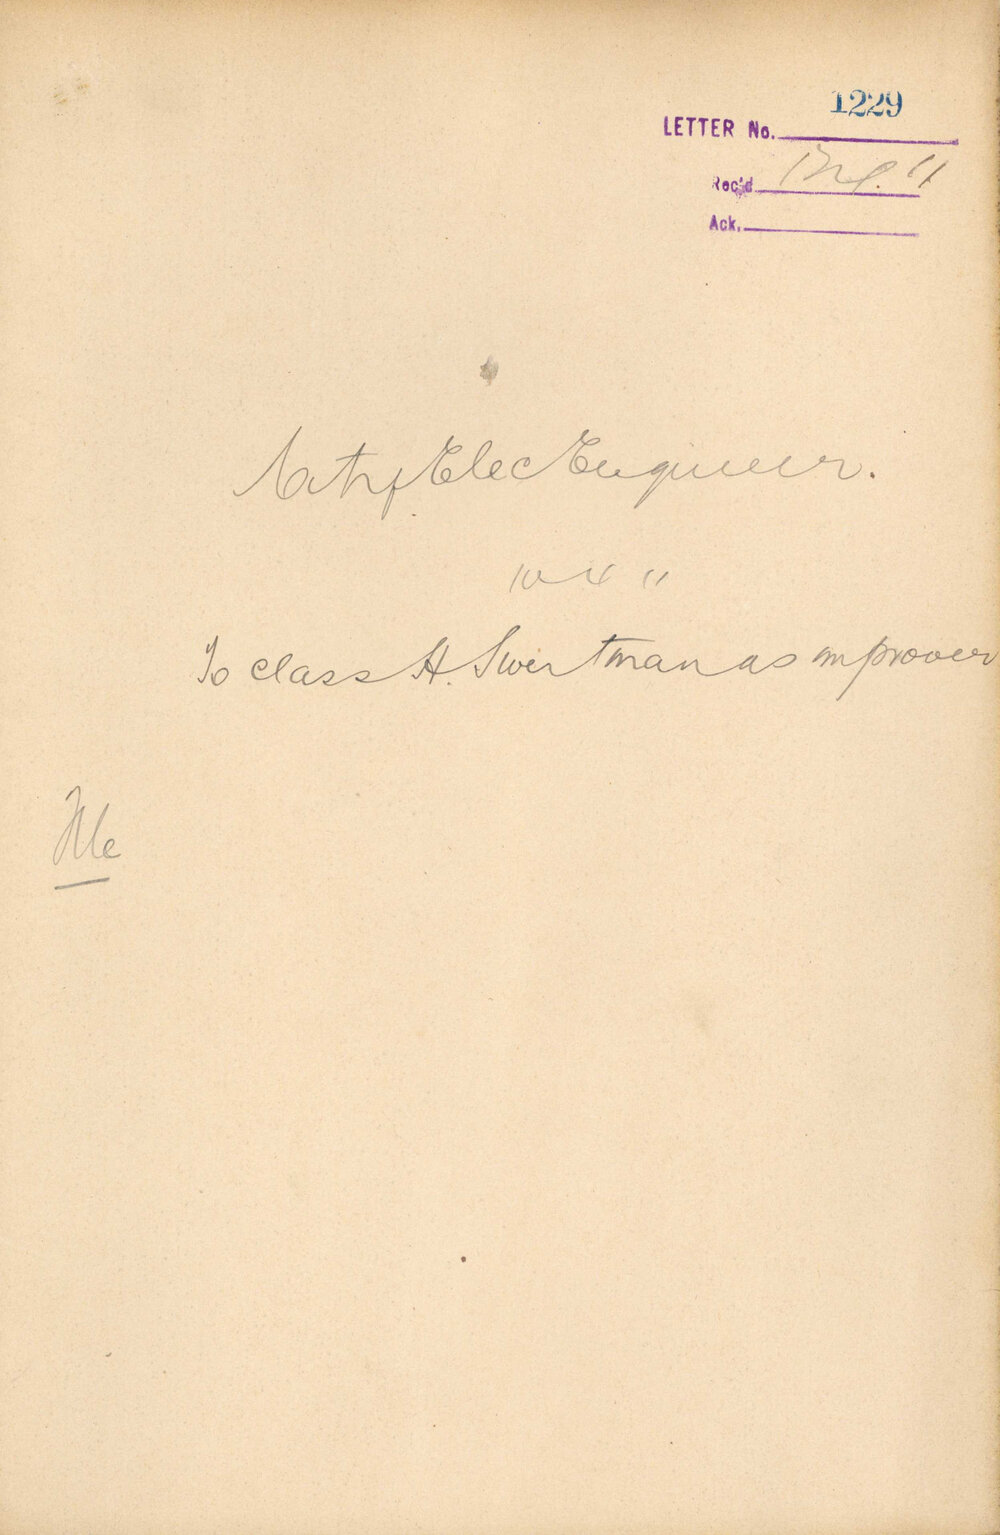 1229
LETTER No.
Rec'd 12/4/11
Ack.
City Elec Engineer.
10 4 11
To class H. Swertman as improver
File